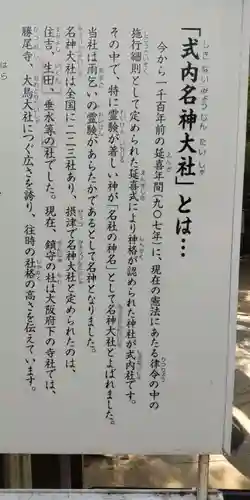 「式内名神大社」とは…
今から一千百年前の延喜年間(九〇七年)に、現在の憲法にあたる律令の中の
施行細則として定められた延喜式により神格が認められた神社が式内社です。
その中で、特に霊験が著しい神が「名社の神名」として名神大社とよばれました。
当社は雨乞いの霊験があらたかであるとして名神となりました。
名神大社は全国に二二三社あり、摂津で名神大社と定められたのは、
住吉、生田、垂水等の社でした。現在、鎮守の杜は大阪府下の寺社では、
勝尾寺、大鳥大社につぐ広さを誇り、往時の社格の高さを伝えています。